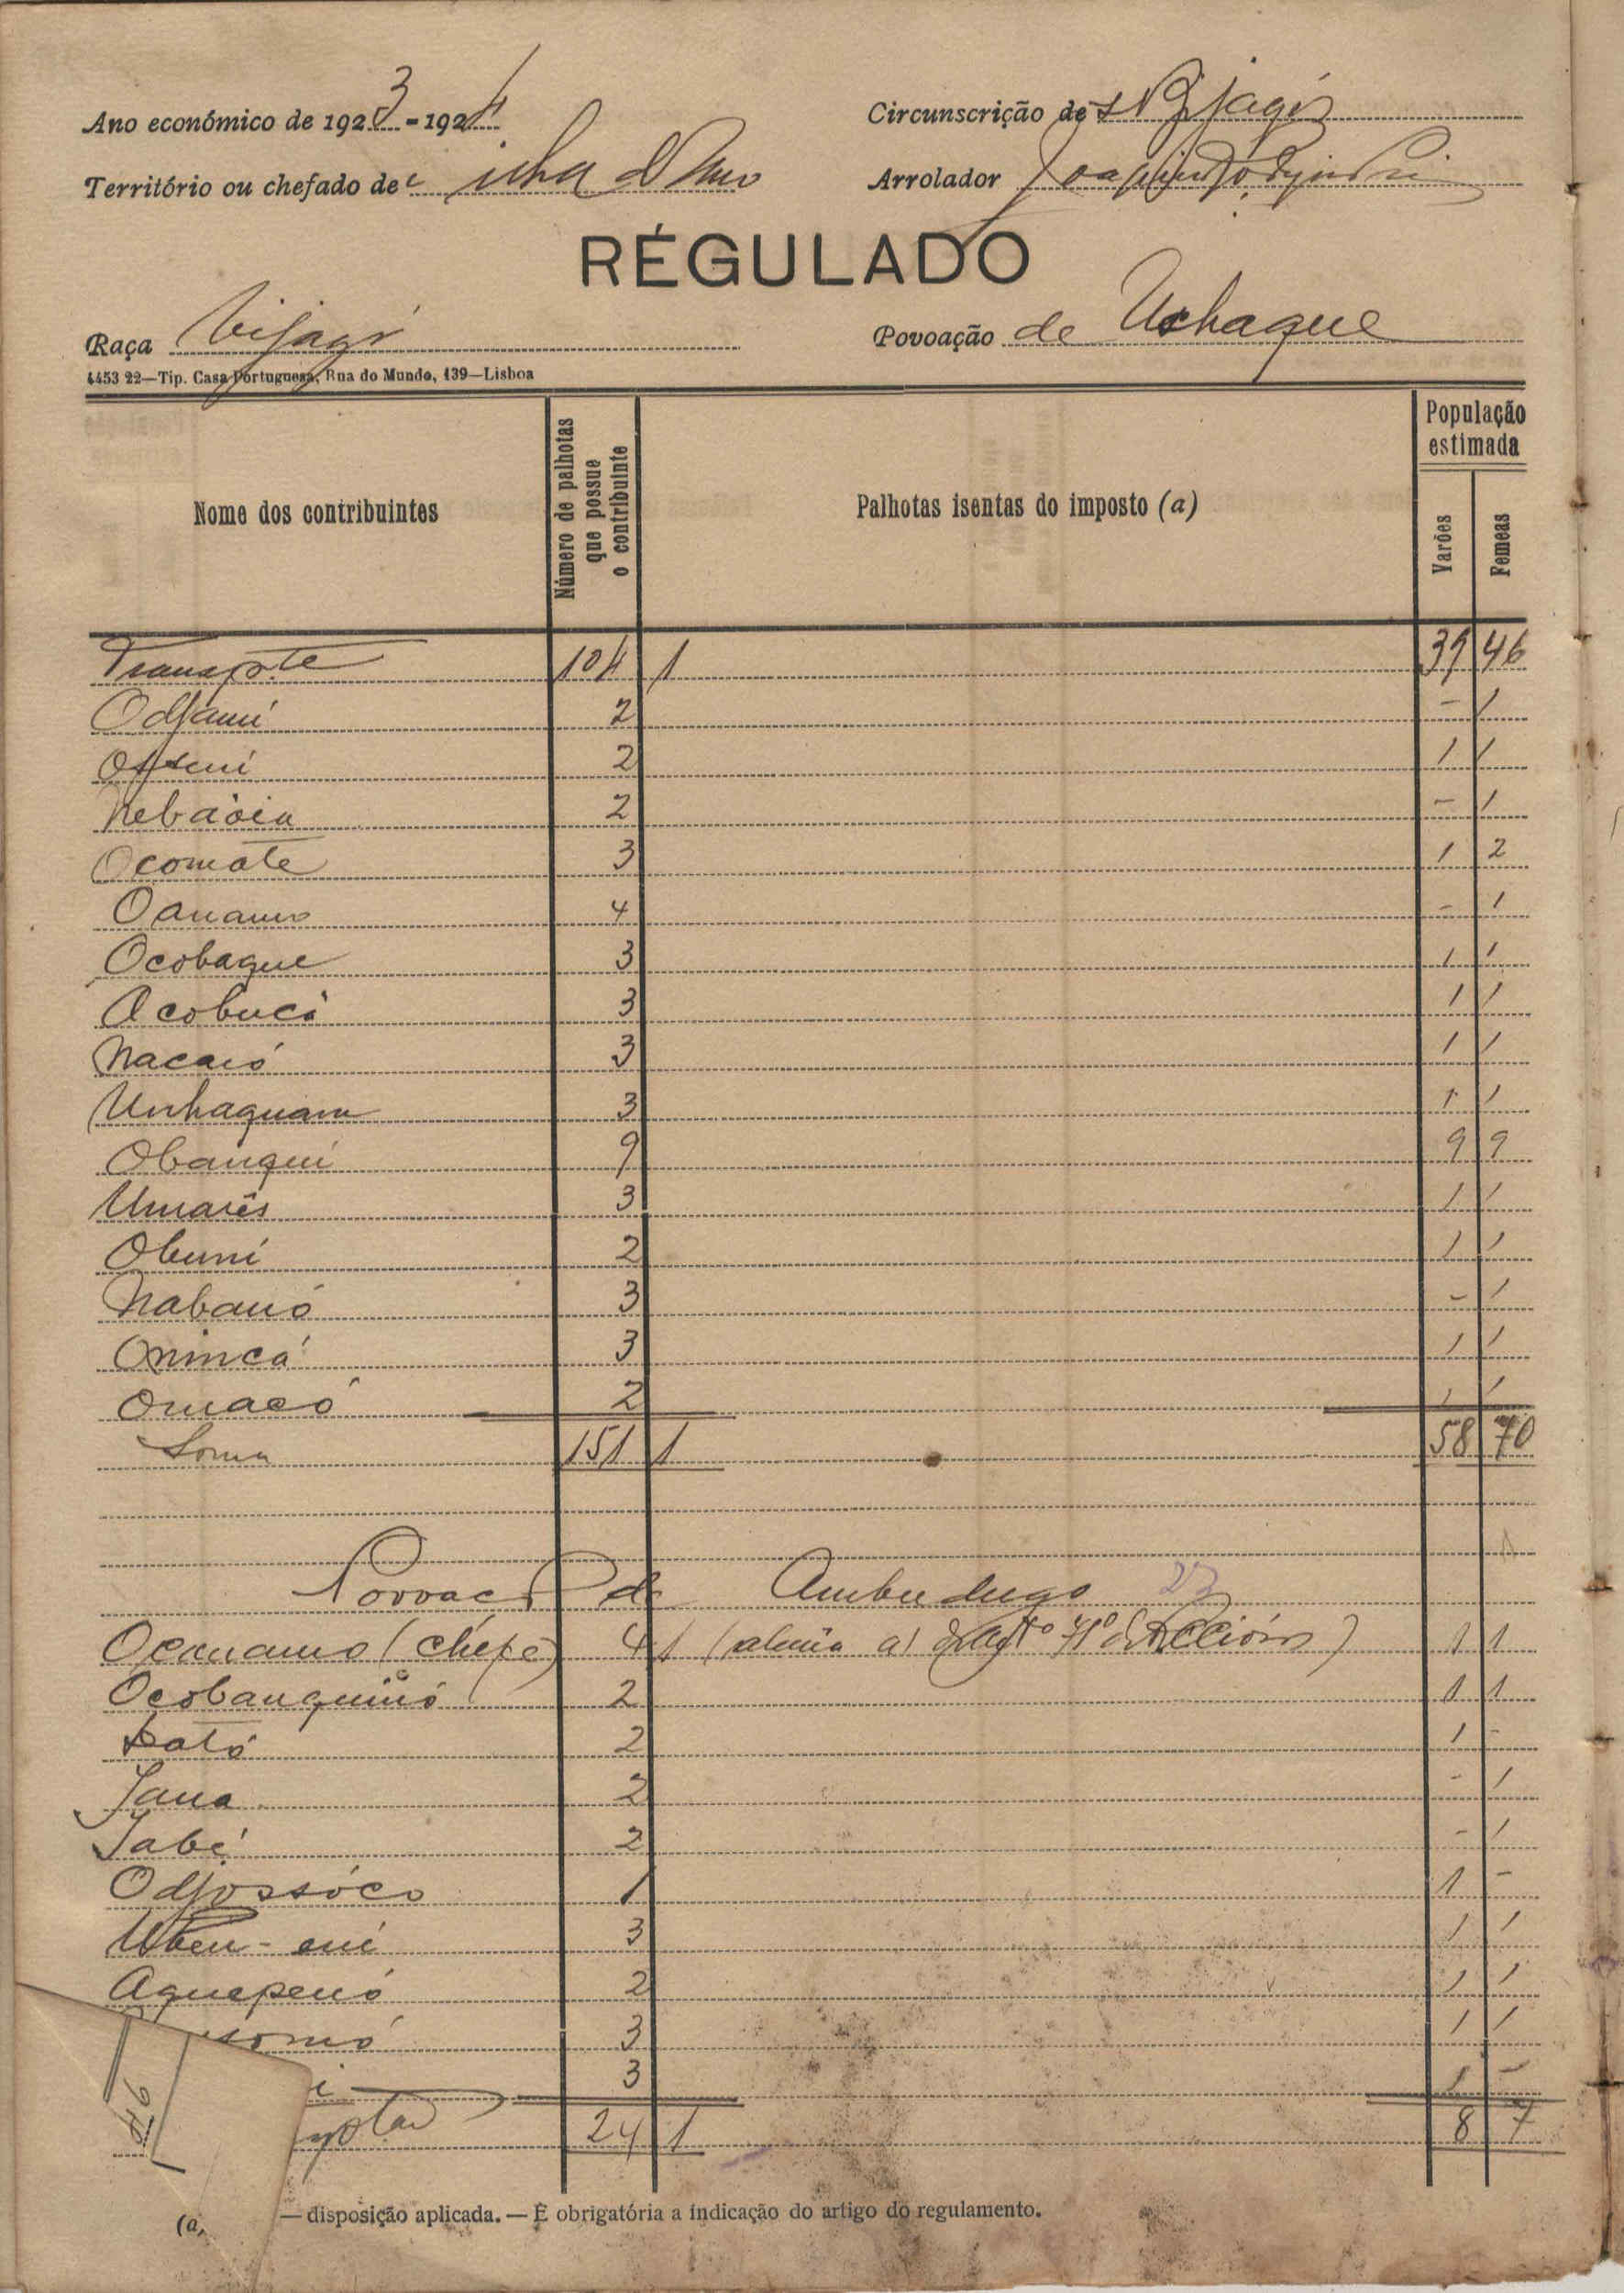 Ano económico de 1923-1924
Circunscrição de Bijagóz
Território ou chefado de ilha d
Arrolador
RÉGULADO
Raça Bijagó
Povoação de Uchaque
4453 22—Tip. Casa Portuguesa, Rua do Mundo, 139—Lisboa
Nome dos contribuintes
Número de palhotas que possue o contribuinte
Palhotas isentas do imposto (a)
População estimada
Varões
Femeas
Transpte 104 1 39 46
Odjami 2 - 1
2 1 1
2 - 1
Ocomote 3 1 2
Oanamo 4 - 1
Ocobaque 3 1 1
Acobucá 3 1 1
Nacaió 3 1 1
Unhaguam 3 1 1
Obangui 9 9 9
Umarés 3 1 1
Obuni 2 1 1
Nabanó 3 - 1
Onincá 3 1 1
Omacó 2 1 1
Soma 151 1 58 70
Povoação de Ambudugo 23
(chefe) 4 1 (alinia a) 1 1
2 1 1
Dató 2 1 -
Jana 2 - 1
Jabé 2 - 1
Odjossóco 1 1 -
3 1 1
Aguepenó 2 1 1
3 1 1
3 1 -
24 1 8 7
(a, — disposição aplicada. — É obrigatória a indicação do artigo do regulamento.